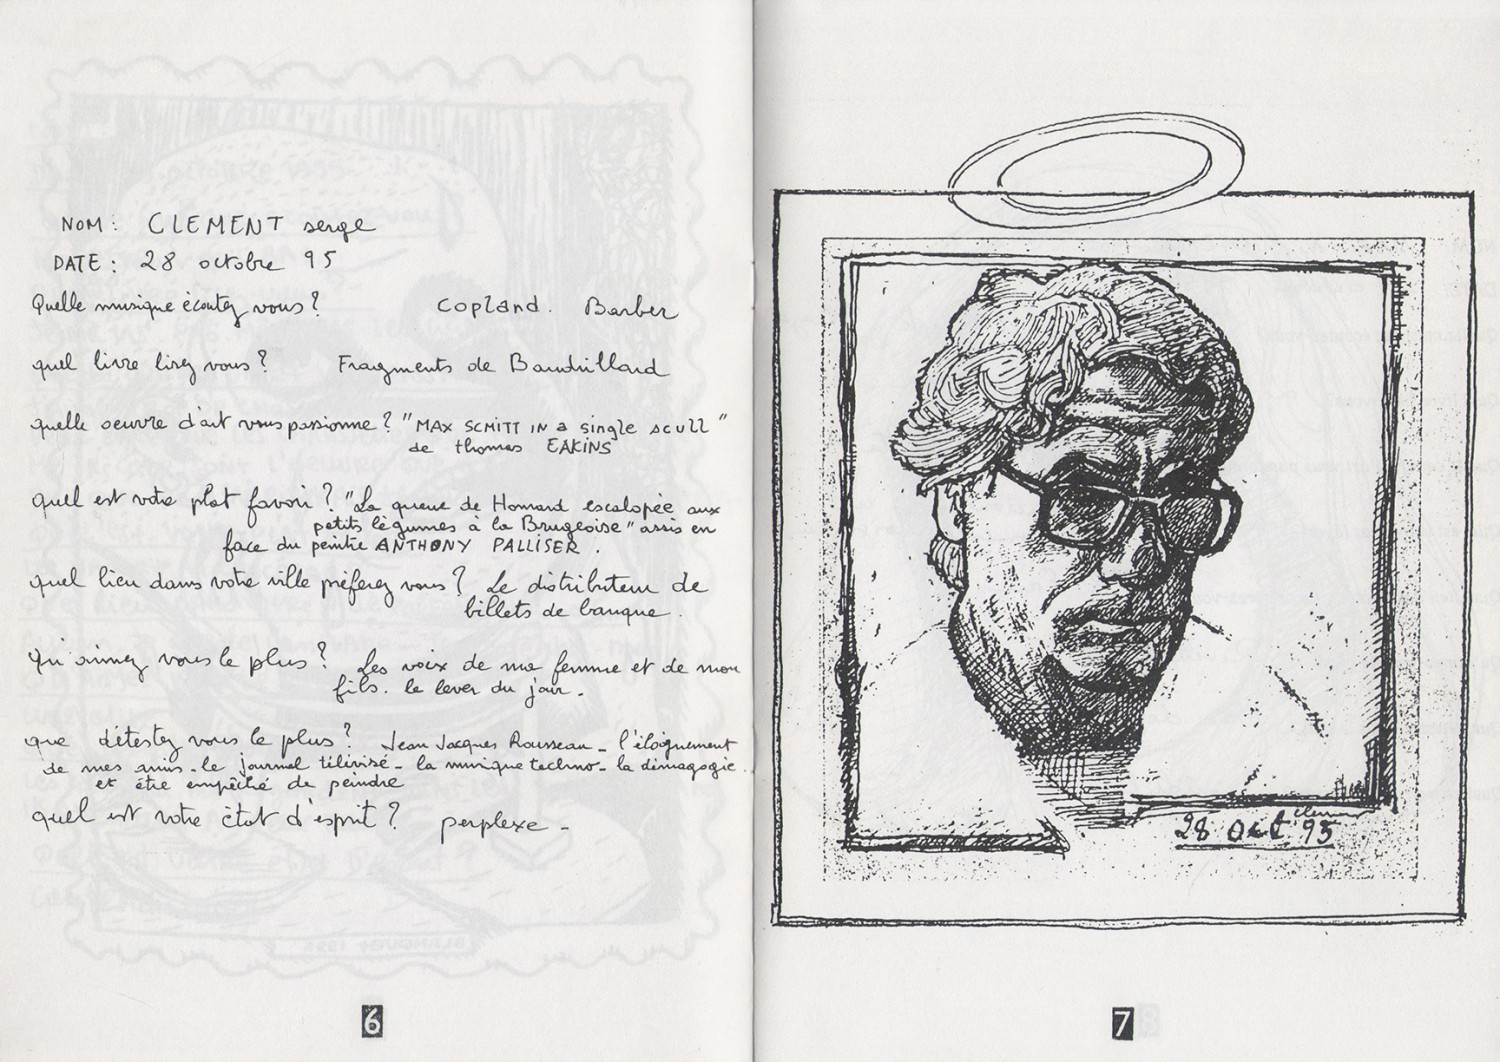 NOM : CLEMENT serge
DATE : 28 octobre 95
Quelle musique écoutez vous ? Copland. Barber
quel livre lisez vous ? Fragments de Baudrillard
quelle oeuvre d'art vous passionne ? "MAX SCMITT IN a single scull"
de thomas EAKINS
quel est votre plat favori ? "La queue de Homard escalopée aux
petits légumes à la Brugeoise" assis en
face du peintre ANTHONY PALLISER .
quel lieu dans votre ville préferez vous ? Le distributeur de
billets de banque .
Qu'aimez vous le plus ? Les voix de ma femme et de mon
fils. le lever du jour .
que détestez vous le plus ? Jean Jacques Rousseau _ l'éloignement
de mes amis _ le journal télévisé _ la musique techno _ la démagogie .
et être empêché de peindre
quel est votre état d'esprit ? perplexe -
6
clement
28 oct 95
7